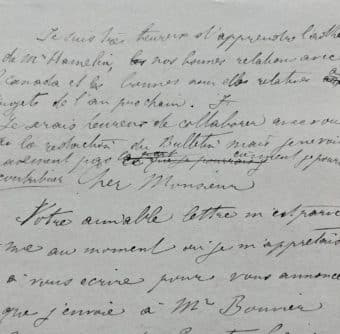 Je suis très heureux d'apprendre l'adhé
de Mr Hamelin, nos bonnes relations avec
Canada et les bonnes nouvelles relatives
projets de l'an prochain. Je
Je serais heureux de collaborer avec vou
à la rédaction du Bulletin mais je ne vois
pas comment je pourrai
contribuer
Cher Monsieur
Votre aimable lettre m'est parve
me au moment où je m'apprêtais
à vous écrire pour vous annonce
que j'envoie à Mr Bonnier